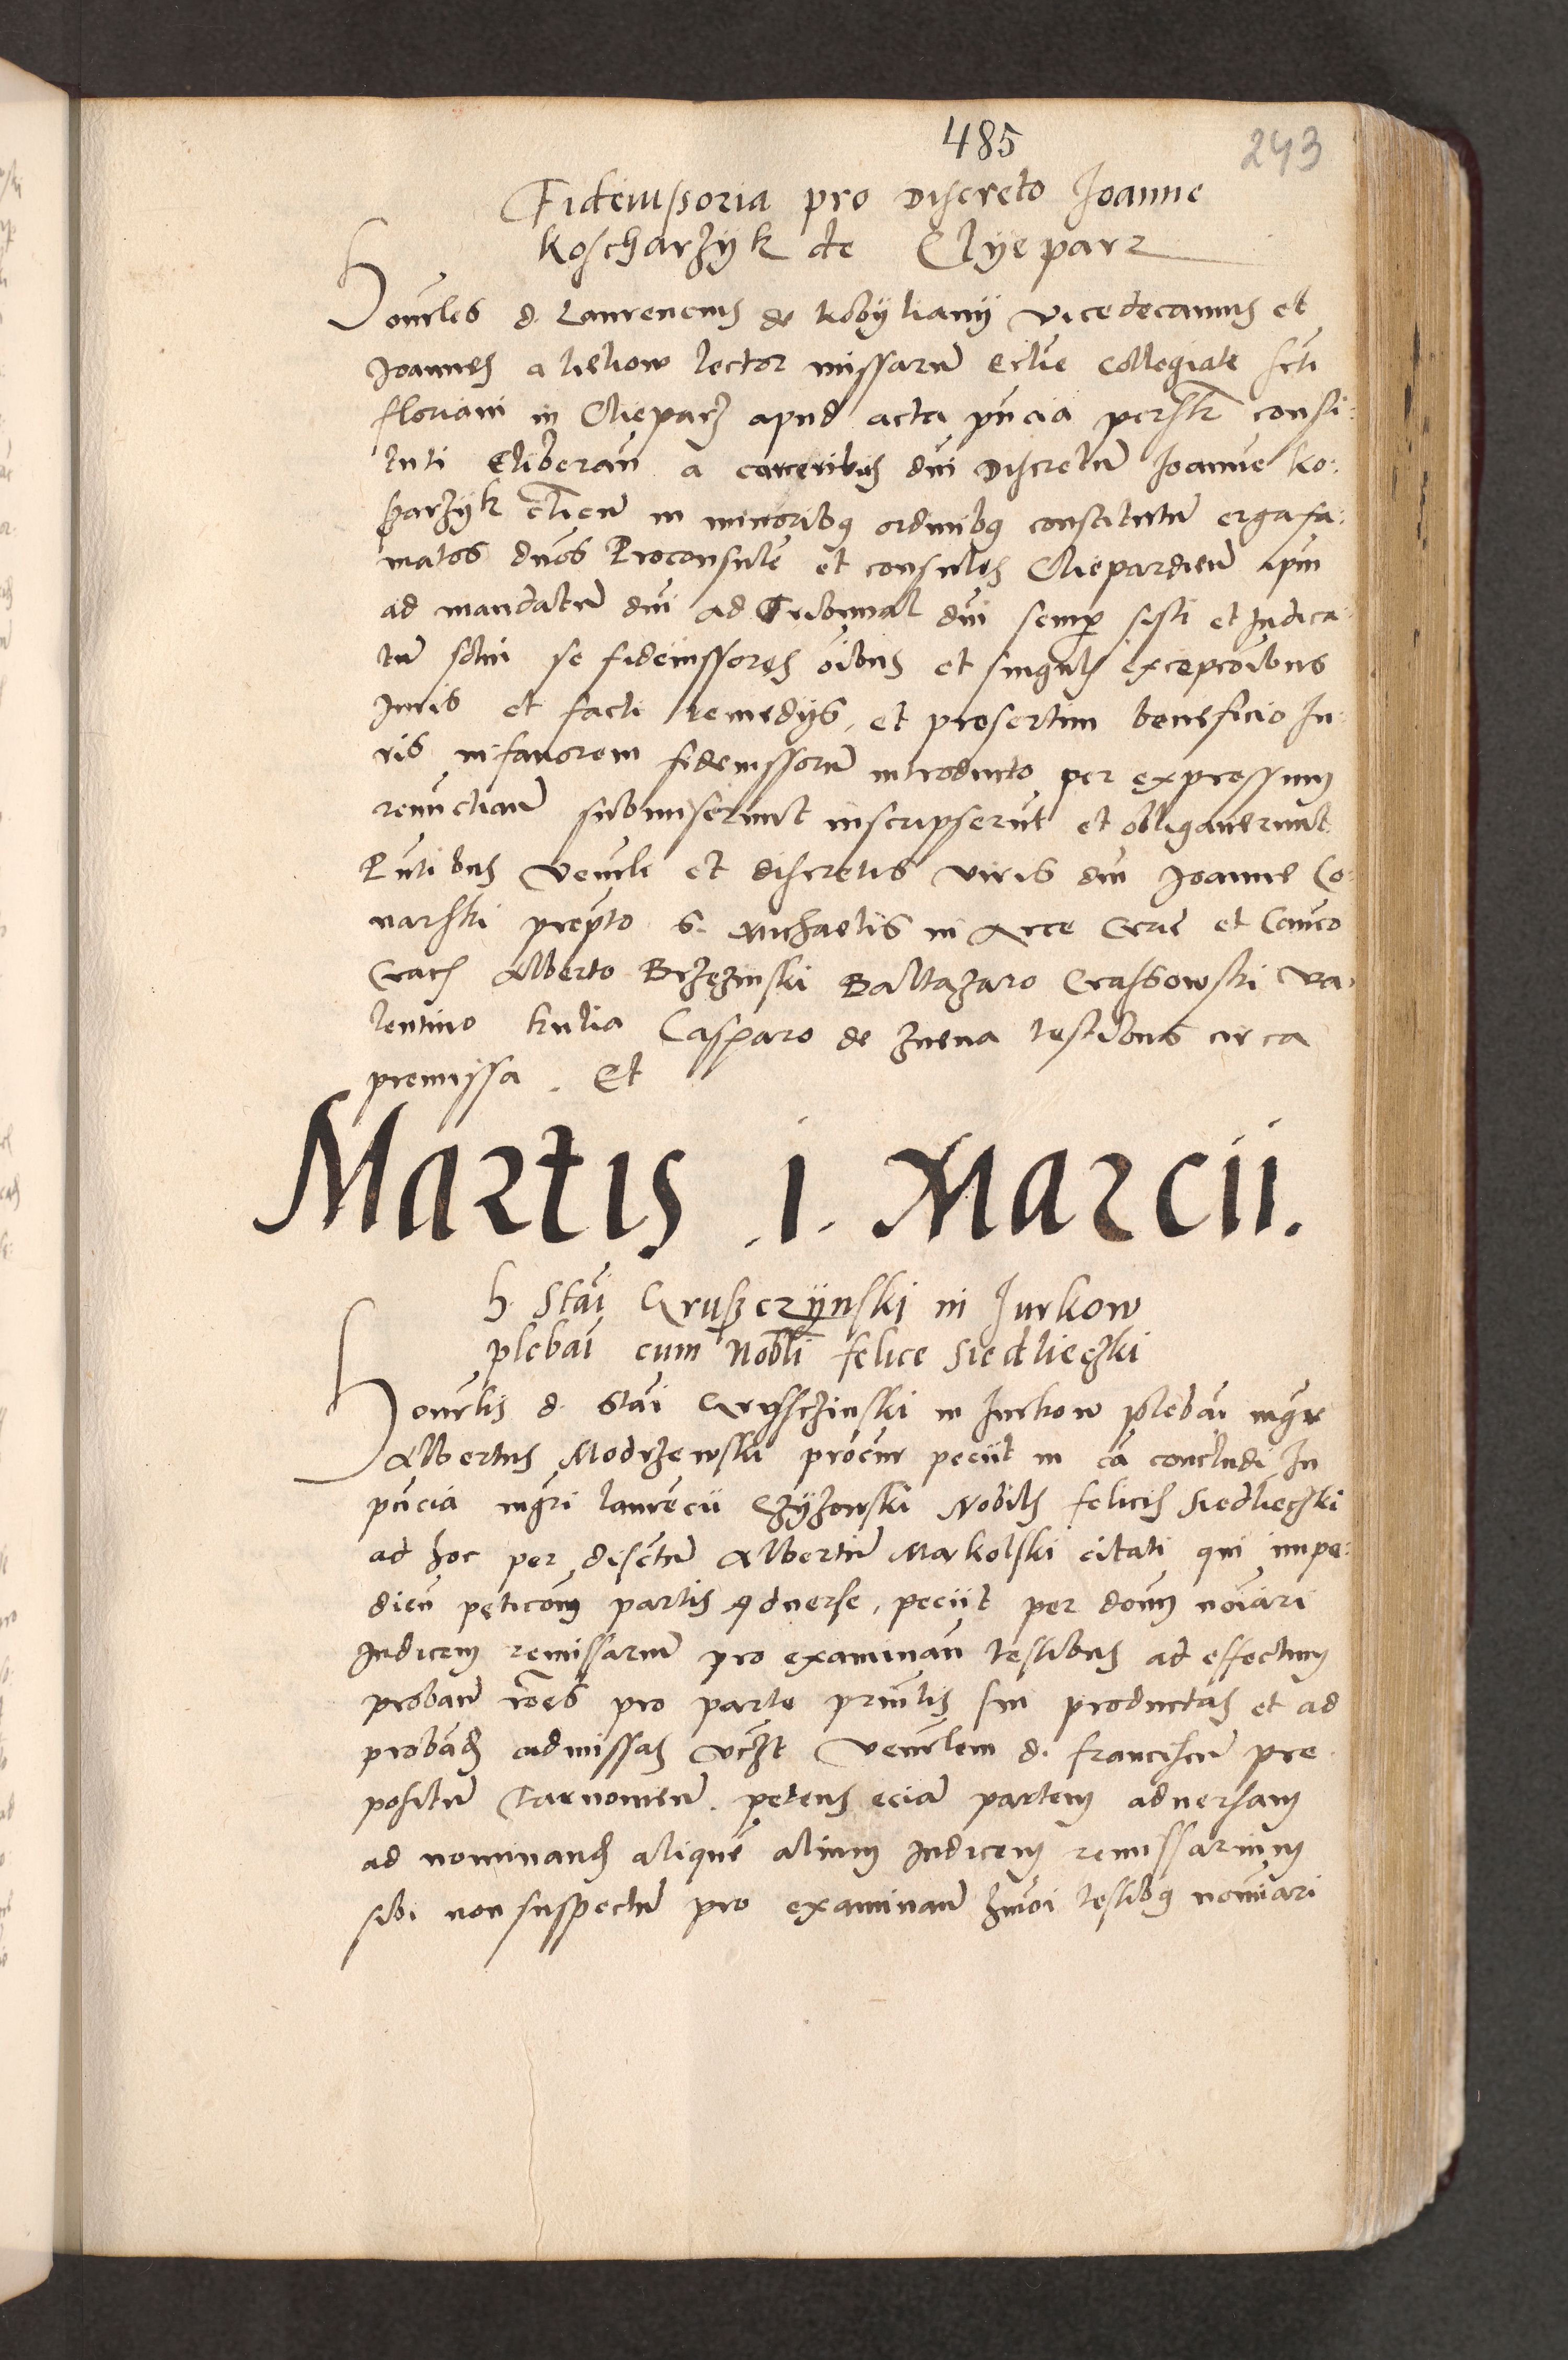 485
243
Fideiussoria pro Discreto Joanne
Koscharzÿk de Clÿeparz
Honrles d. Laurencius de Kobÿlianÿ vicedecanus et
Joannes a Lielow lector missarū eclie collegiate scti
floriani in Clieparz apud acta pncia persltr consti:
tuti Eliberan̄ a carceribus dni Discretū Joanne Ko:
szarzÿk clicum in minoribq ordinibq constitutū erga fa:
matos dnos Proconsulē et consules Cliepardien̄ ipm
ad mandatū dni ad Tribunal dni semp sisti et Judica:
tū solui se fideiussores oibus et singulis excepcōibus
Juris et facti remedÿs, et presertim beneficio Ju:
ris in fauorem fideiussorū introducto per expressum
renūctian̄ submiserunt inscripserūt et obligauerunt
Pntibus venrli et discretis viris dni Joanne Co:
narski prepto S. Michaelis in Arce Crac et Canco
Crac Alberto Brzezinski Baltazaro Crassowski Va:
lentino Kulia Casparo de Znena testibus circa
premissa . Et
Martis .1. Marcii.
h. Stai Gruszczÿnski in Jurkow
plebaī cum Nobli felice Siedlieczki
Honrlis d. Stai Grussczinski in Jurkow plebaī mgr
Albertus Modrzewski procur peciit in cā concludi In
pncia mgri laurēcii Czÿzowski Nobilis felicis Siedlieczki
ad hoc per discrtū Albertū Markolski citati qui impe:
dien̄ peticōm partis Aduerse, peciit per dom̄ noīari
Judicem remissarium pro examinan̄ testibus ad effectum
proban̄ rōes pro parte prīnlis sui productas et ad
proband admissas vczt Venrlem d. franciscū pre
positū Tarnouien̄. petens eciā partem aduersam
ad nominand aliquē alium Judicem remissarium
sibi non suspectū pro examinan̄ hmoi testibq nominari